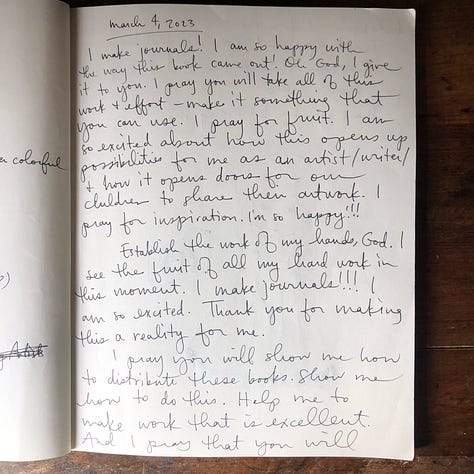 march 4, 2023
I make journals! I am so happy with
the way this book came out! Oh God, I give
it to you. I pray you will take all of this
work & effort – make it something that
you can use. I pray for fruit. I am
so excited about how this opens up
possibilities for me as an artist/writer/
& how it opens doors for our
children to share their artwork. I
pray for inspiration. I'm so happy!!!
Establish the work of my hands, God. I
see the fruit of all my hard work in
this moment. I make journals!!! I
am so excited. Thank you for making
this a reality for me.
I pray you will show me how
to distribute these books. Show me
how to do this. Help me to
make work that is excellent.
And I pray that you will
colorful